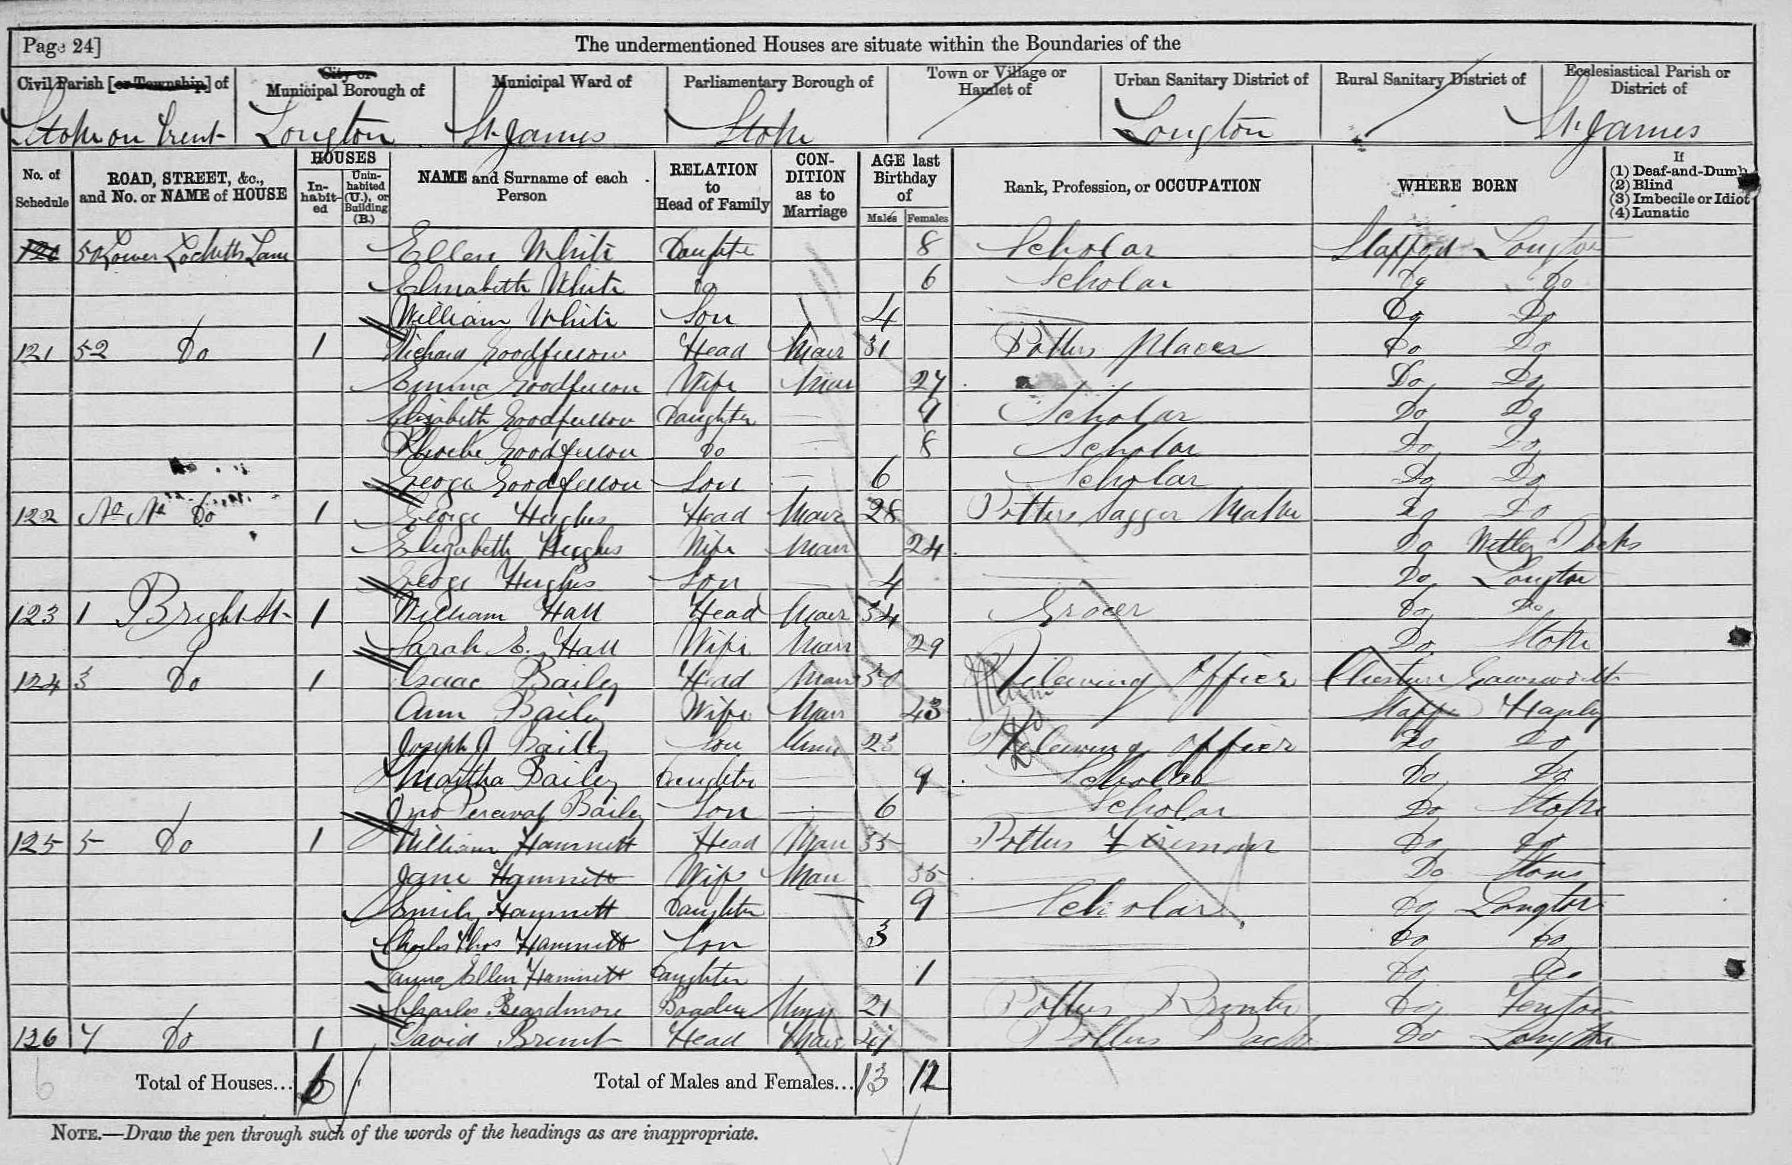 Page 24]
The undermentioned Houses are situate within the Boundaries of the
Civil Parish [or Township] of City or Municipal Borough of Municipal Ward of Parliamentary Borough of Town or Village or Hamlet of Urban Sanitary District of Rural Sanitary District of Ecclesiastical Parish or District of
Stoke on Trent Longton St James Stoke Longton St James
No. of Schedule ROAD, STREET, &c., and No. or NAME of HOUSE HOUSES Inhabited Uninhabited (U.), or Building (B.) NAME and Surname of each Person RELATION to Head of Family CONDITION as to Marriage AGE last Birthday of Males Females Rank, Profession, or OCCUPATION WHERE BORN If (1) Deaf-and-Dumb (2) Blind (3) Imbecile or Idiot (4) Lunatic
120 50 Lower Locketts Lane Ellen White Daughter 8 Scholar Stafford Longton
Elizabeth White Do 6 Scholar Do Do
William White Son 4 Do Do
121 52 Do 1 Richard Goodfellow Head Mar 31 Potters Placer Do Do
Emma Goodfellow Wife Mar 27 Do Do
Elizabeth Goodfellow Daughter 9 Scholar Do Do
Phoebe Goodfellow Do 8 Scholar Do Do
George Goodfellow Son 6 Scholar Do Do
122 Do 1 George Hughes Head Mar 28 Potters Sagger Maker Do Do
Elizabeth Hughes Wife Marr 24 Do Wetley Rocks
George Hughes Son 4 Do Longton
123 1 Bright St 1 William Hall Head Marr 34 Grocer Do Do
Sarah E. Hall Wife Marr 29 Do Stoke
124 3 Do 1 Isaac Bailey Head Marr 50 Relieving Officer Cheshire Gawsworth
Ann Bailey Wife Marr 43 Staffs Hanley
Joseph J Bailey Son Unm 23 Relieving Officer Do Do
Martha Bailey Daughter 9 Scholar Do Do
Jno Percival Bailey Son 6 Scholar Do Stoke
125 5 Do 1 William Hammett Head Mar 35 Potters Fireman Do Do
Jane Hammett Wife Mar 35 Do Stone
Emily Hammett Daughter 9 Scholar Do Longton
Charles Thos Hammett Son 3 Do Do
Ellen Hammett Daughter 1 Do Do
Charles Beardmore Boader Unm 21 Potters Printer Do Fenton
126 7 Do 1 David Brunt Head Mar 47 Potters Packer Do Longton
6 Total of Houses... 6 Total of Males and Females... 13 12
NOTE.—Draw the pen through such of the words of the headings as are inappropriate.